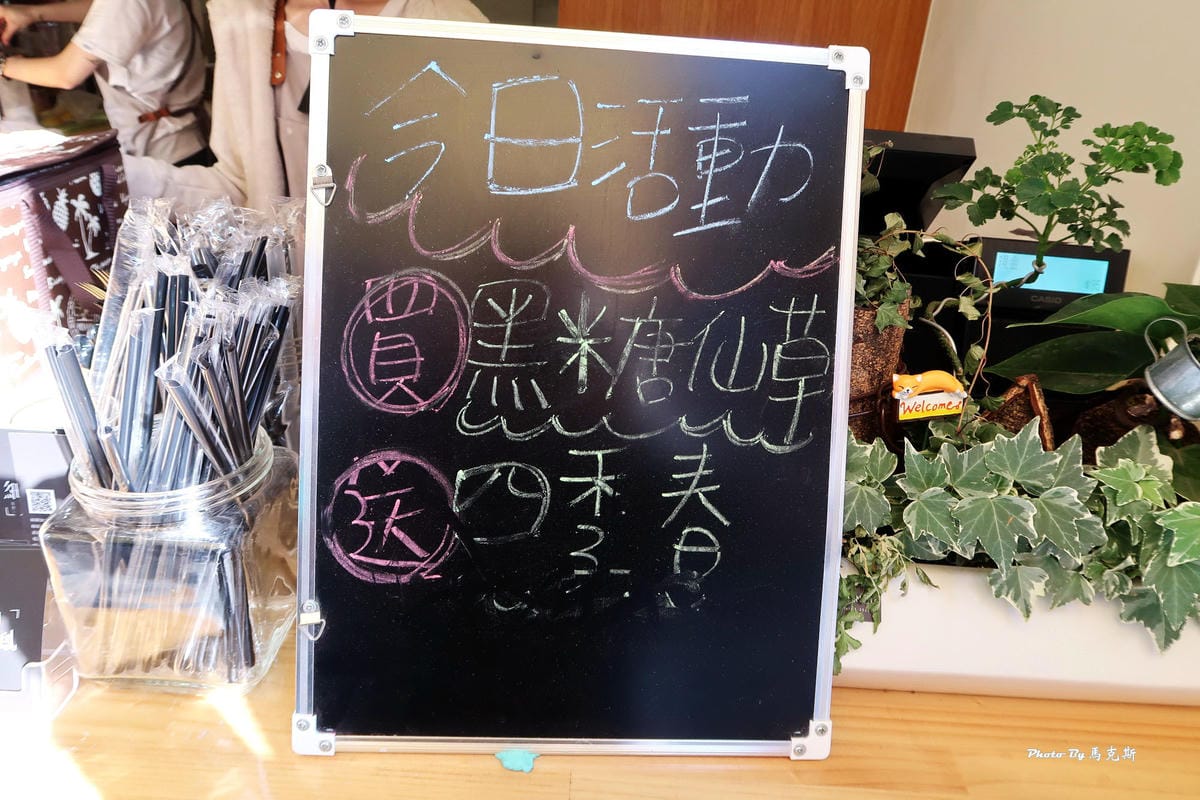 今日活動
買 黑糖仙草
送 四季春
Welcome
CASIO
Photo By 馬克斯